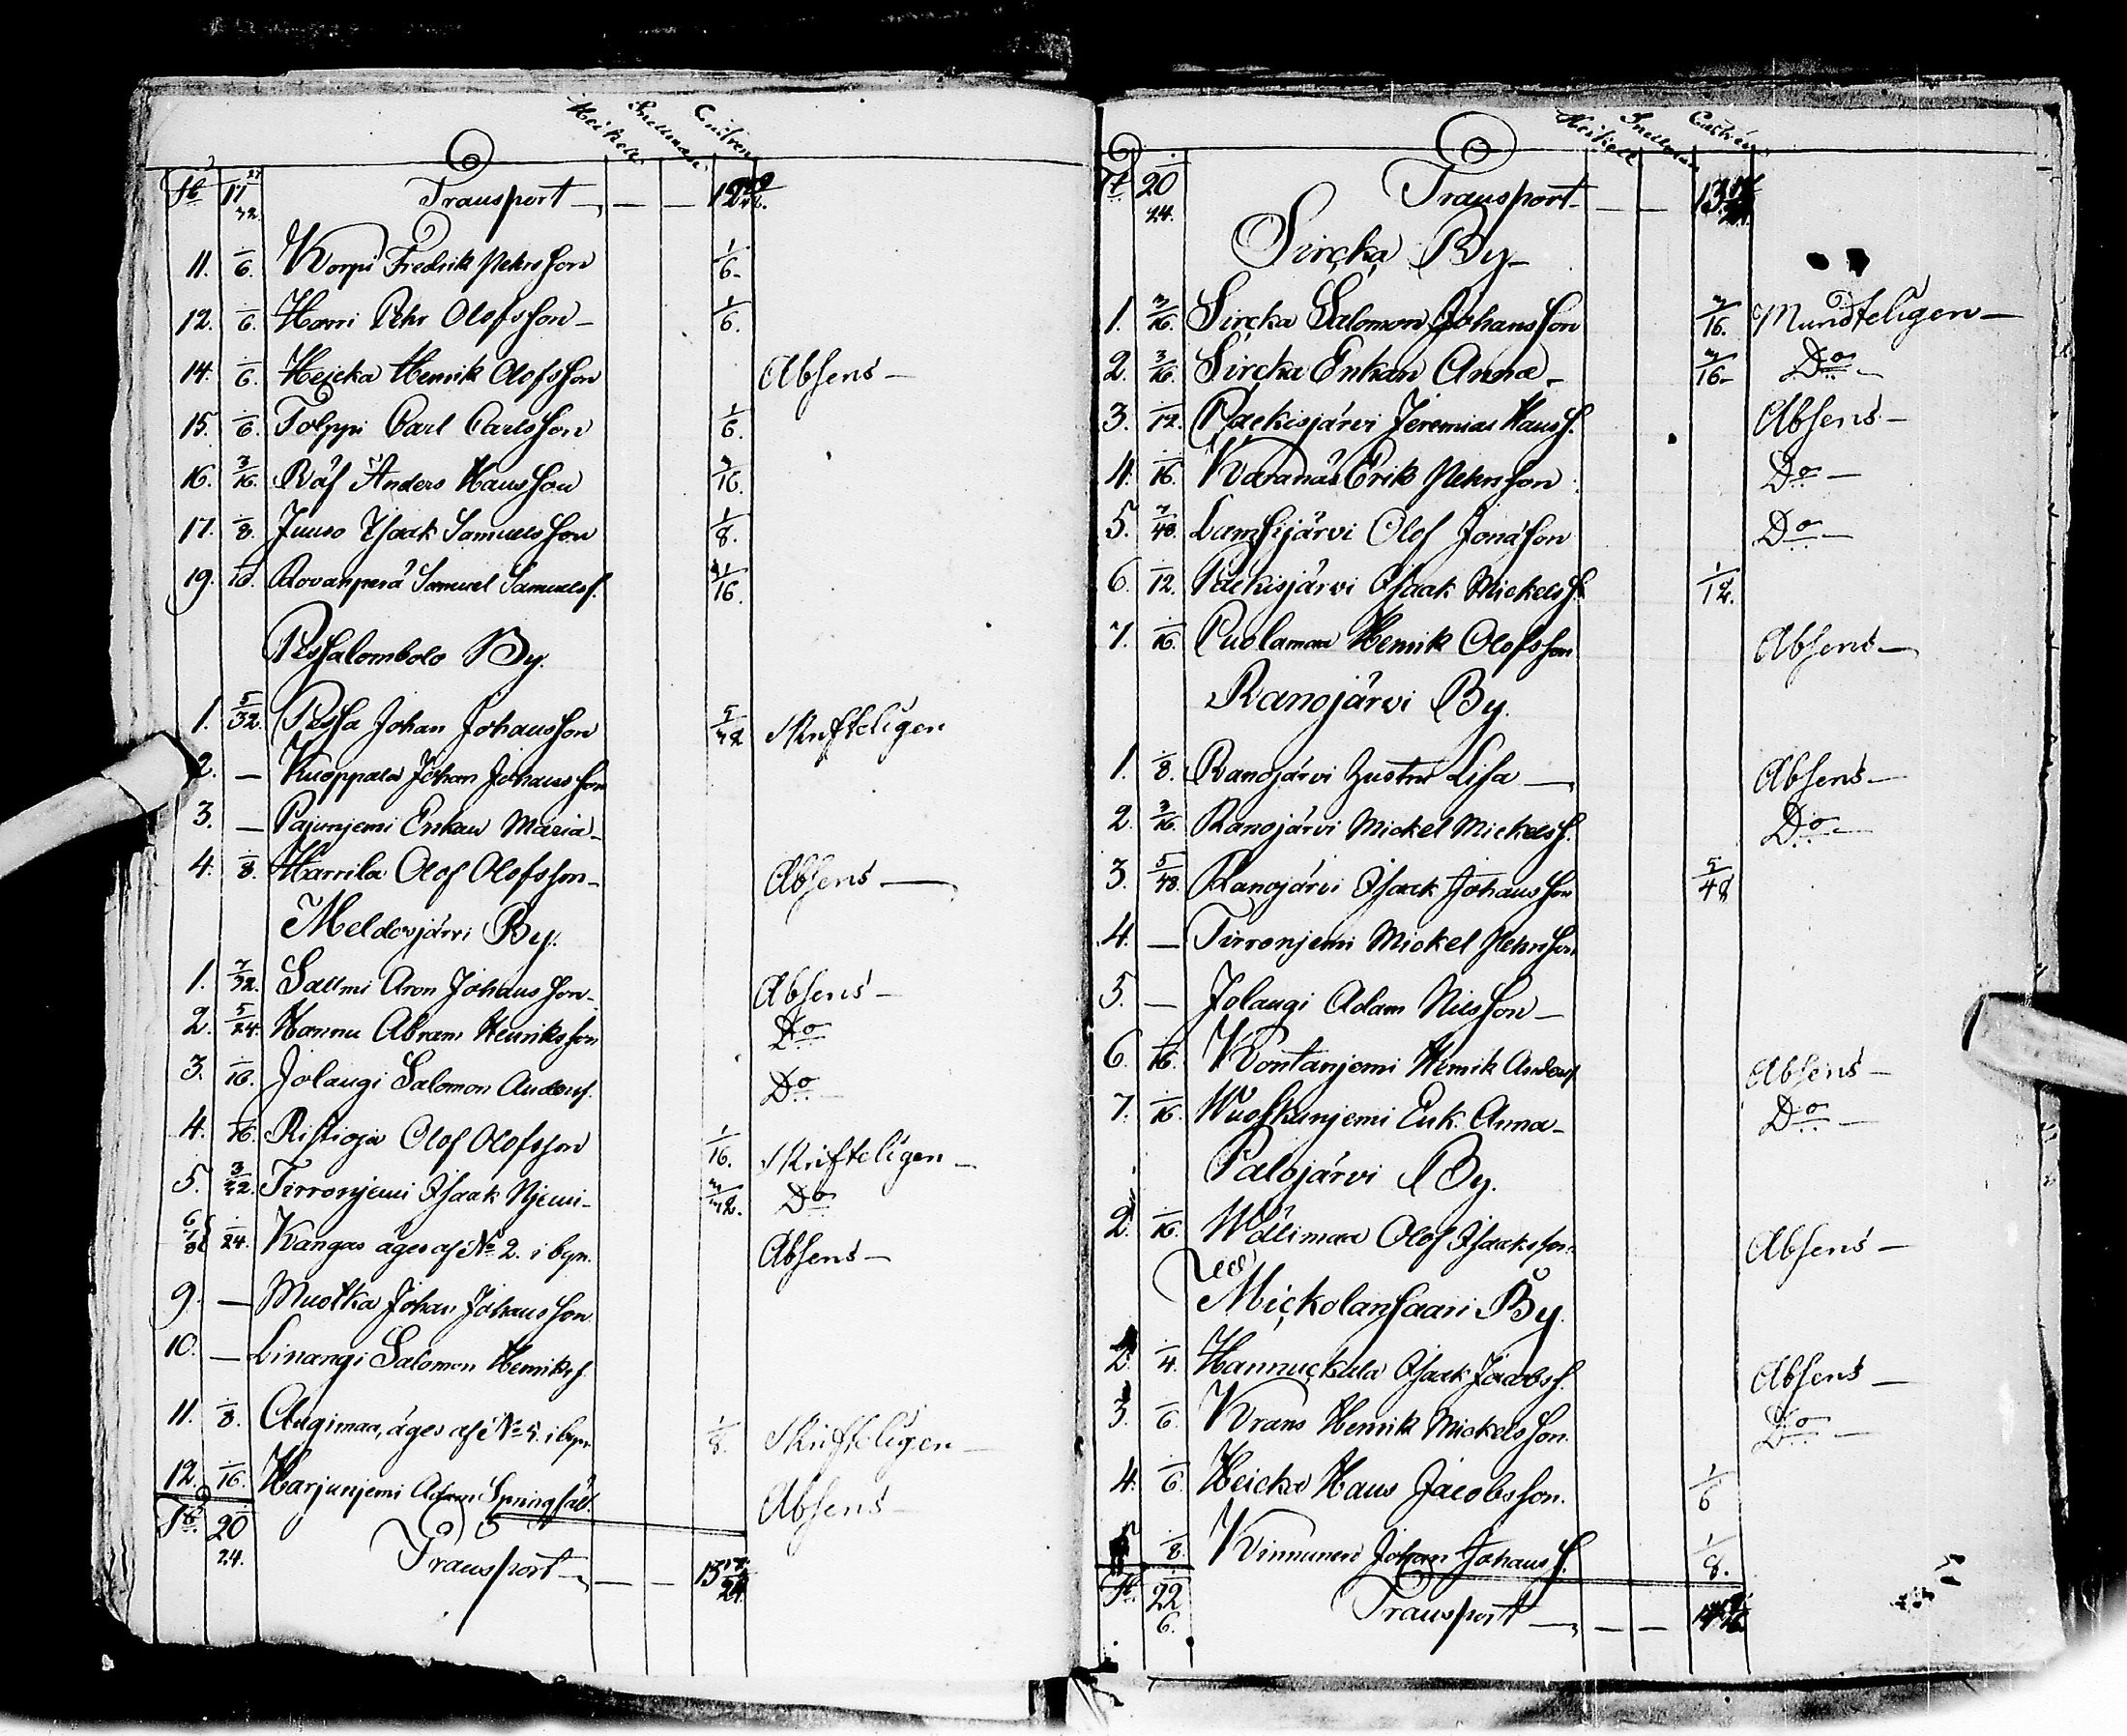 Heikell Snellman Castren
St 17 27/72 Transport — — — 12
11. 1/6. Korpi Fredrik Pehrsson 1/6.
12. 1/6. Harri Pehr Olofsson — 1/6.
14. 1/6. Heicka Henrik Olofsson Absens —
15. 1/6. Tolppi Carl Carlsson 1/6.
16. 3/16. Räf Anders Hansson 3/16.
17. 1/8. Juuso Isaak Samuelsson 1/8.
19. 1/16. Rovanperä Samuel Samuelss. 1/16.
Pessalombolo By.
1. 5/32. Pessa Johan Johansson 5/32 Skrifteligen
2. — Kuoppala Johan Johansson
3. — Pajunjemi Enkan Maria —
4. 1/8. Harrila Olof Olofsson — Absens —
Meldovjärvi By.
1. 7/32. Sallmi Aron Johansson — Absens —
2. 5/24. Hannu Abram Henriksson Do
3. 1/16. Jolangi Salomon Anderss. Do —
4. 1/16. Ristioja Olof Olofsson 1/16. Skrifteligen —
5. 3/32. Tirronjemi Isaak Njemi — 3/32. Do
6 7 8 1/24. Kangas äges af No 2. i byn. Absens —
9. — Muotka Johan Johansson
10. — Linangi Salomon Henrikss.
11. 1/8. Augimaa, äges af No 5. i byn 1/8. Skrifteligen —
12. 1/16. Harjunjemi Adam Springfält. Absens —
St 20 1/24. Transport — — — 13 17/24
Heikell Snellman Castrén
St 20 1/24. Transport — — — 13
Sircka By —
1. 3/16. Sircka Salomon Johansson 3/16. Mundteligen —
2. 3/16. Sircka Enkan Anna — 3/16. Do —
3. 1/12. Packisjärvi Jeremias Hanss. Absens —
4. 1/16. Waranäs Erik Pehrsson Do —
5. 7/48. Lamsijärvi Olof Jonasson Do —
6. 1/12. Packisjärvi Isaak Mickelss. 1/12.
7. 1/16. Puolamaa Henrik Olofsson Absens —
Ranojärvi By.
1. 1/8. Ranojärvi hustru Lisa — Absens —
2. 3/16. Ranojärvi Mickel Mickelss. Do —
3. 5/48. Ranojärvi Isaak Johansson 5/48
4. — Tirronjemi Mickel Pehrsson
5. — Jolangi Adam Nilsson —
6. 1/16. Kontanjemi Henrik Anderss Absens —
7. 1/16. Wuoskunjemi Enk. Anna — Do —
Palojärvi By.
2. 1/16. Wälimaa Olof Isaksson. Absens —
Mickolansaari By.
2. 1/4. Hannuckala Isaak Jacobss. Absens —
3. 1/6. Krans Henrik Mickelsson. Do —
4. 1/6. Heicka Hans Jacobsson. 1/6
1/8. Kinnunen Johan Johanss. 1/8.
St. 22 1/6. Transport — — —